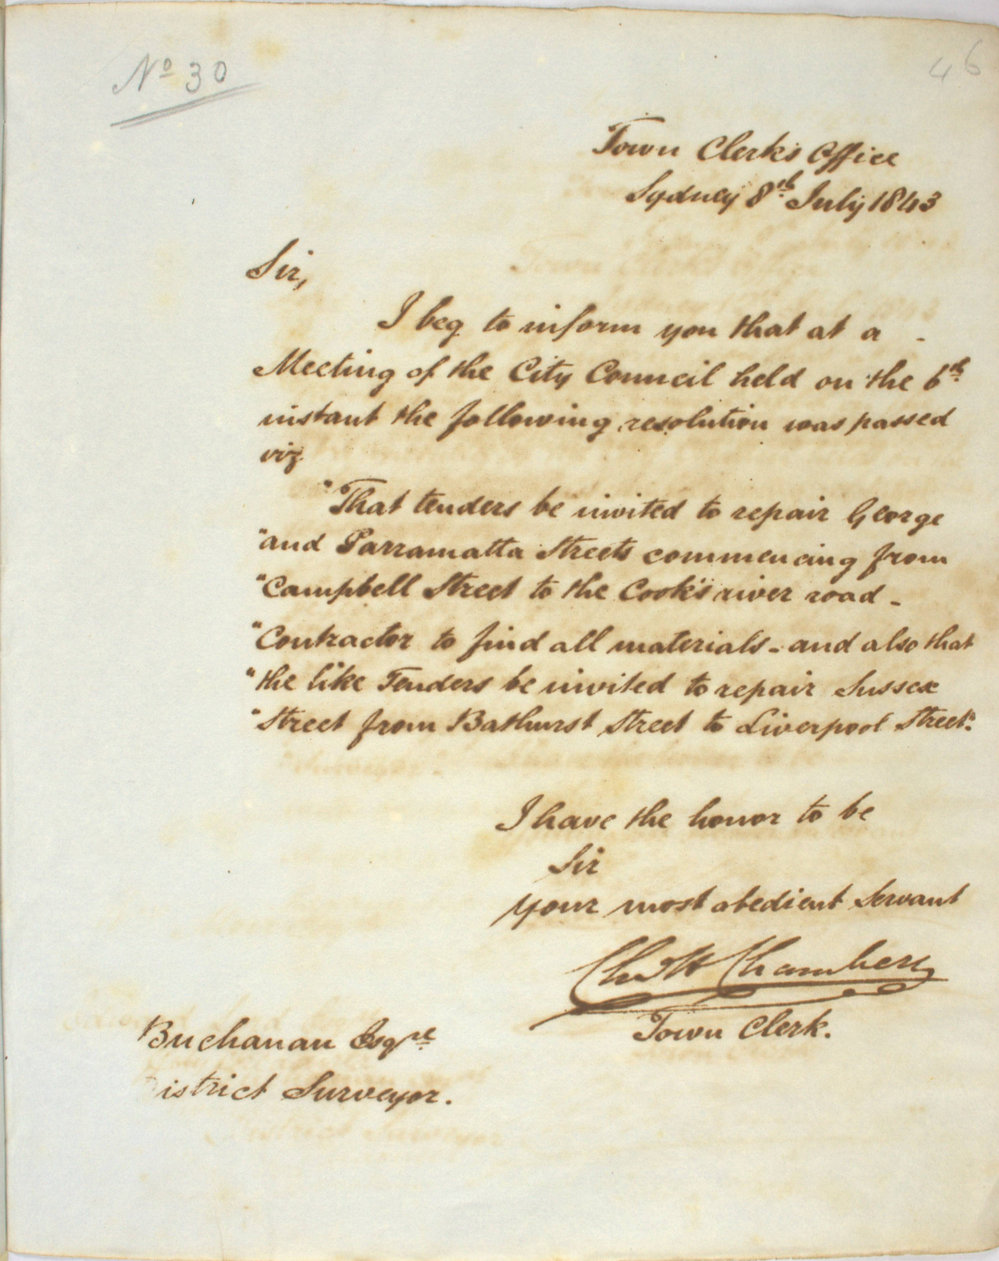 Nº 30
46
Town Clerk's Office
Sydney 8th July 1843
Sir,
I beg to inform you that at a -
Meeting of the City Council held on the 6th
instant the following resolution was passed
viz
"That tenders be invited to repair George
"and Parramatta Streets commencing from
"Campbell Street to the Cook's river road -
"Contractor to find all materials - and also that
"the like Tenders be invited to repair Sussex
"Street from Bathurst Street to Liverpool Street."
I have the honor to be
Sir
Your most obedient Servant
Chas H Chambers
Town Clerk.
Buchanan Esqre
istrict Surveyor.